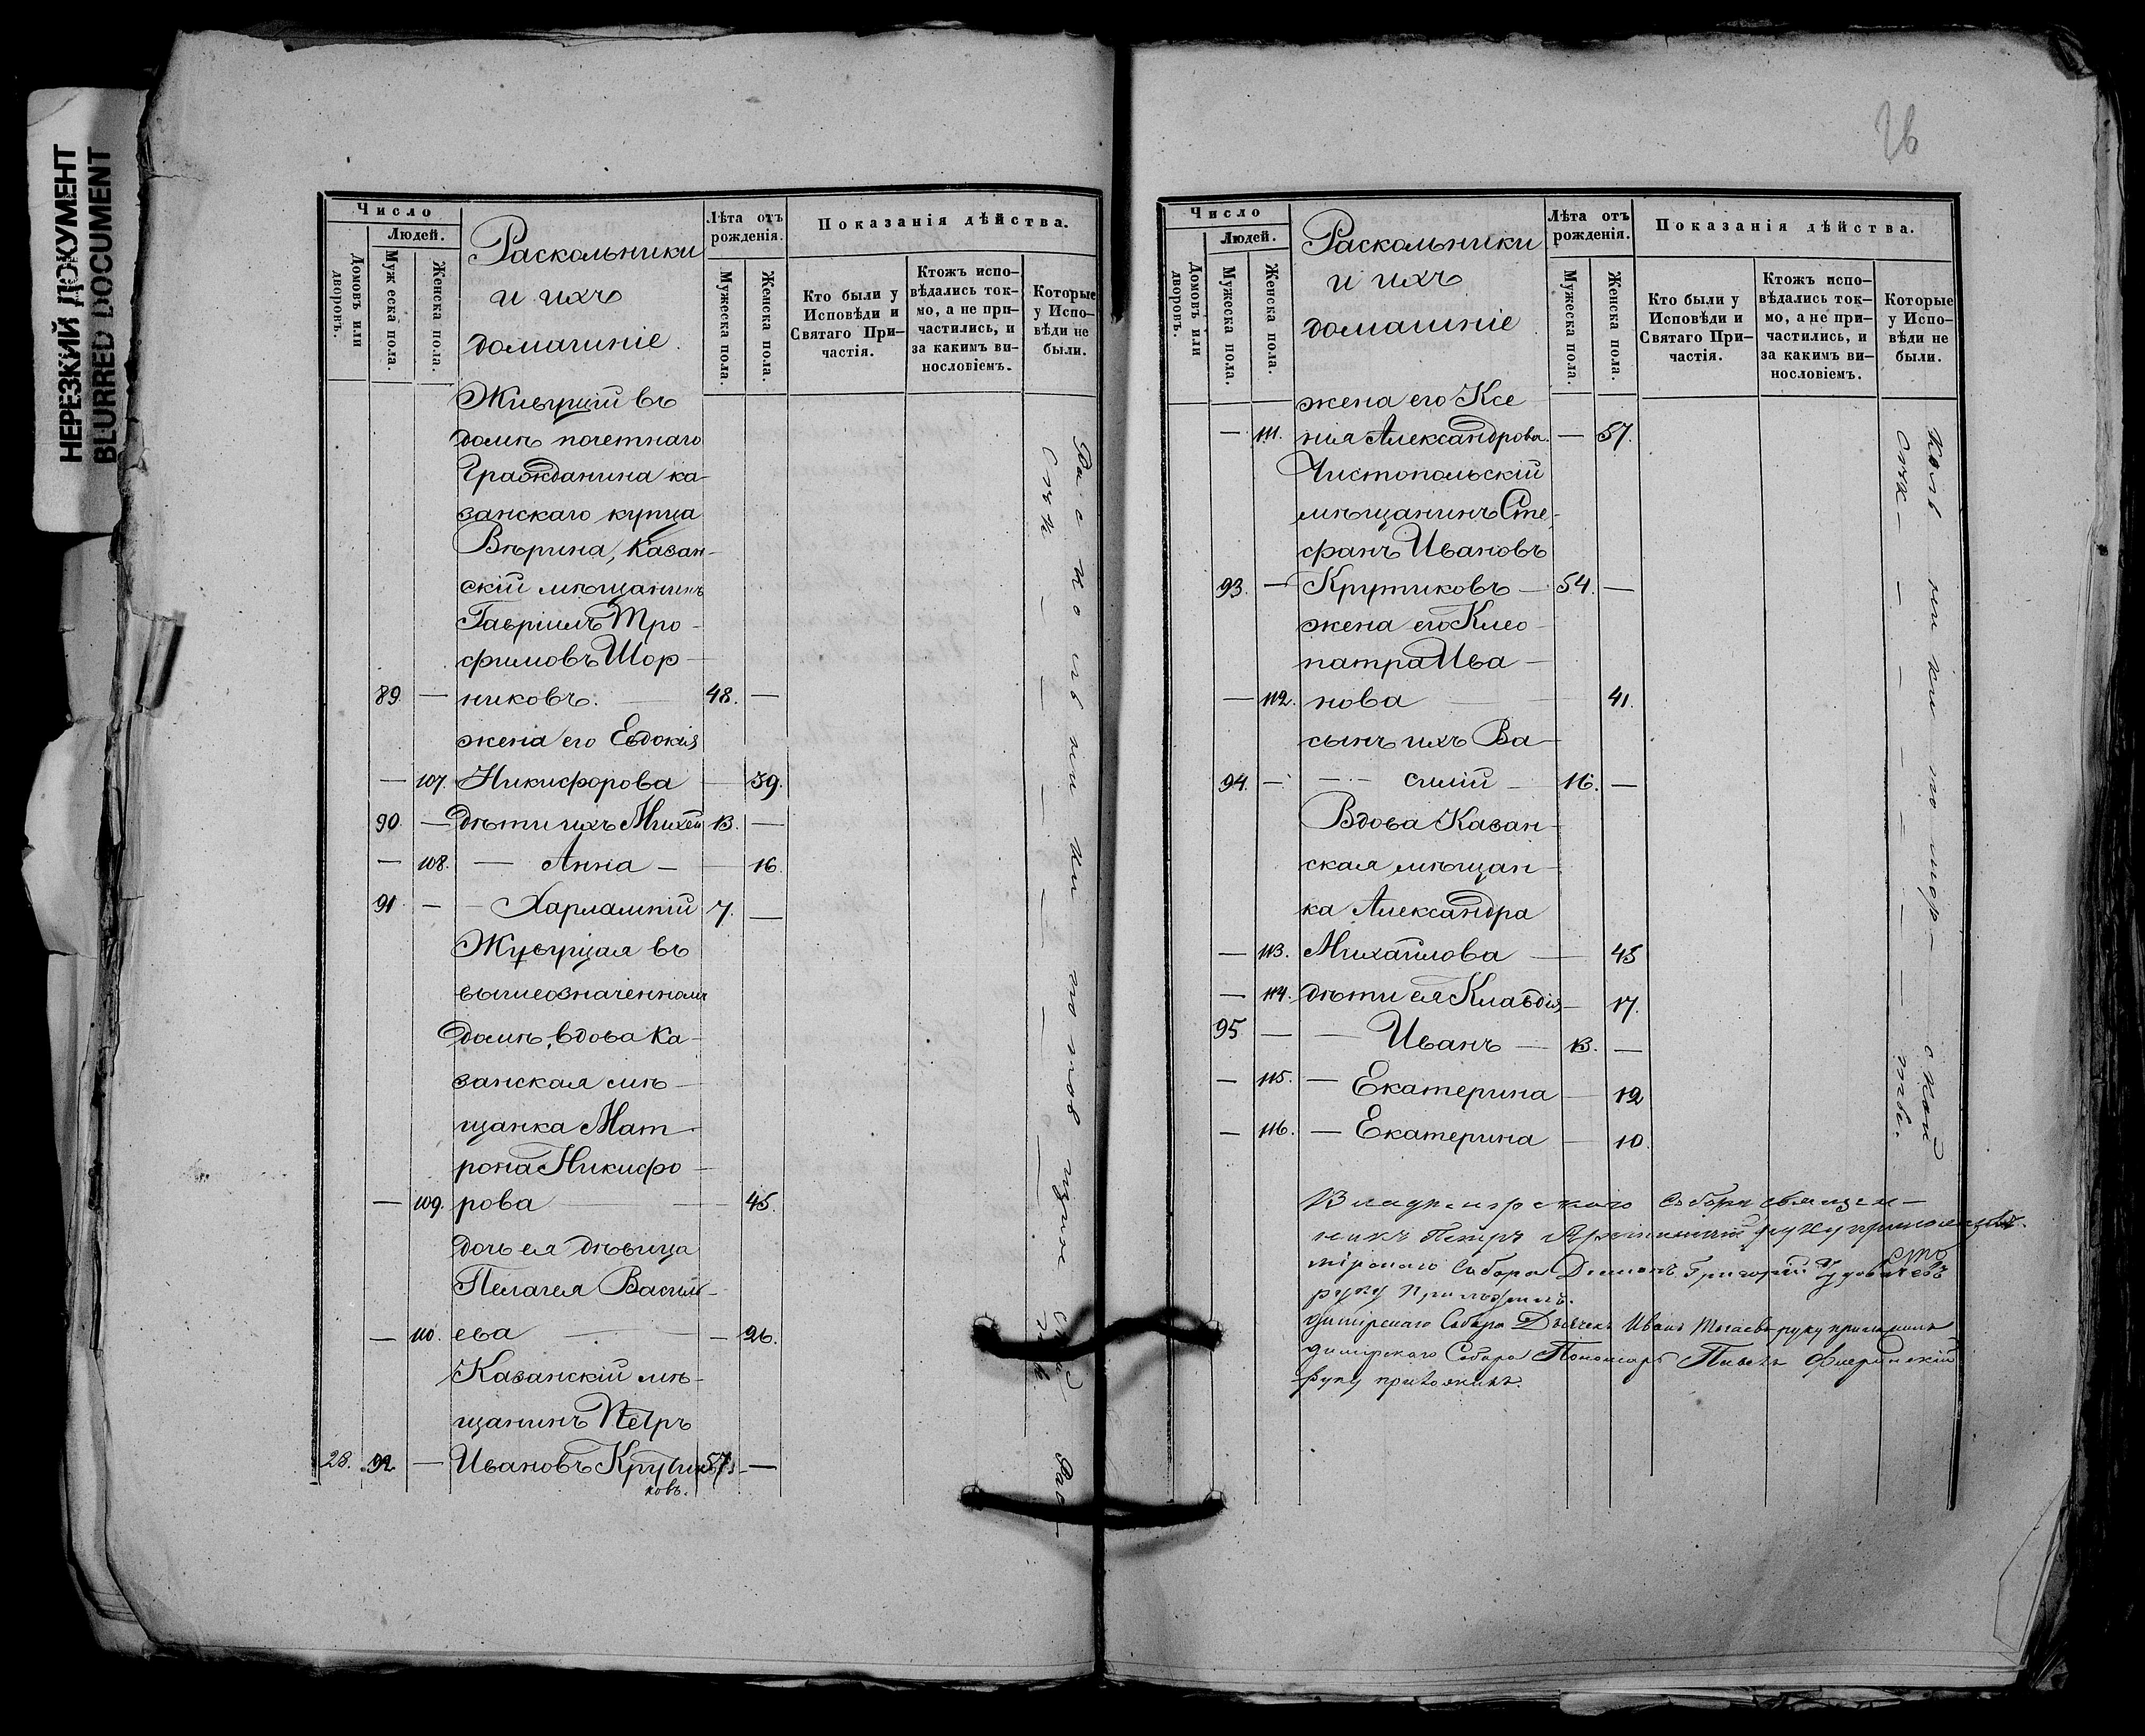 НЕРЕЗКИЙ ДОКУМЕНТ
BLURRED DOCUMENT
Число
Людей.
Домовъ или дворовъ.
Мужеска пола.
Женска пола.
Раскольники
и ихъ
домашніе.
Лѣта отъ
рожденія.
Мужеска пола.
Женска пола.
Показанія дѣйства.
Кто были у
Исповѣди и
Святаго При-
частія.
Ктожъ испо-
вѣдались ток-
мо, а не при-
частились, и
за какимъ ви-
нословіемъ.
Которые
у Испо-
вѣди не
были.
Живущій въ
домѣ почетнаго
Гражданина ка-
занскаго купца
Вѣрина, Казан-
скій мѣщанинъ
Гавріилъ Тро-
фимовъ Шор-
89. — никовъ. — 48. —
жена его Евдокія
— 107. Никифорова — 39.
90. — дѣти ихъ Михей 13. —
— 108. — Анна — — 16.
91. — — Харлампій 7. —
Живущая въ
вышеозначенномъ
домѣ, вдова Ка-
занская мѣ-
щанка Мат-
рона Никифо-
— 109. рова — — 45.
дочь ея дѣвица
Пелагея Василь-
— 110. ева — — 26.
Казанскій мѣ-
щанинъ Петръ
28. 92. — Ивановъ Крути 57. —
ковъ.
26
Число
Людей.
Домовъ или дворовъ.
Мужеска пола.
Женска пола.
Раскольники
и ихъ
домашніе
Лѣта отъ
рожденія.
Мужеска пола.
Женска пола.
Показанія дѣйства.
Кто были у
Исповѣди и
Святаго При-
частія.
Ктожъ испо-
вѣдались ток-
мо, а не при-
частились, и
за какимъ ви-
нословіемъ.
Которые
у Испо-
вѣди не
были.
жена его Ксе
— 111. нія Александрова. — 57.
Чистопольскій
мѣщанинъ Сте-
фанъ Ивановъ
93. — Крутиковъ — 54. —
жена его Клео-
патра Ива-
— 112. нова — 41.
сынъ ихъ Ва-
94. — — силій — 16. —
Вдова Казан-
ская мѣщан-
ка Александра
— 113. Михайлова — 45
— 114. дѣти ея Клавдія — 17.
95. — — Иванъ — 13. —
— 115. — Екатерина — 12
— 116. — Екатерина — 10.
Владимірскаго Собора священ-
никъ Петръ руку приложилъ
мірскаго Собора Діаконъ Григорій
руку приложилъ.
димірскаго Собора Дьячекъ Иванъ руку приложилъ
димірскаго Собора Пономарь Павелъ
руку приложилъ.